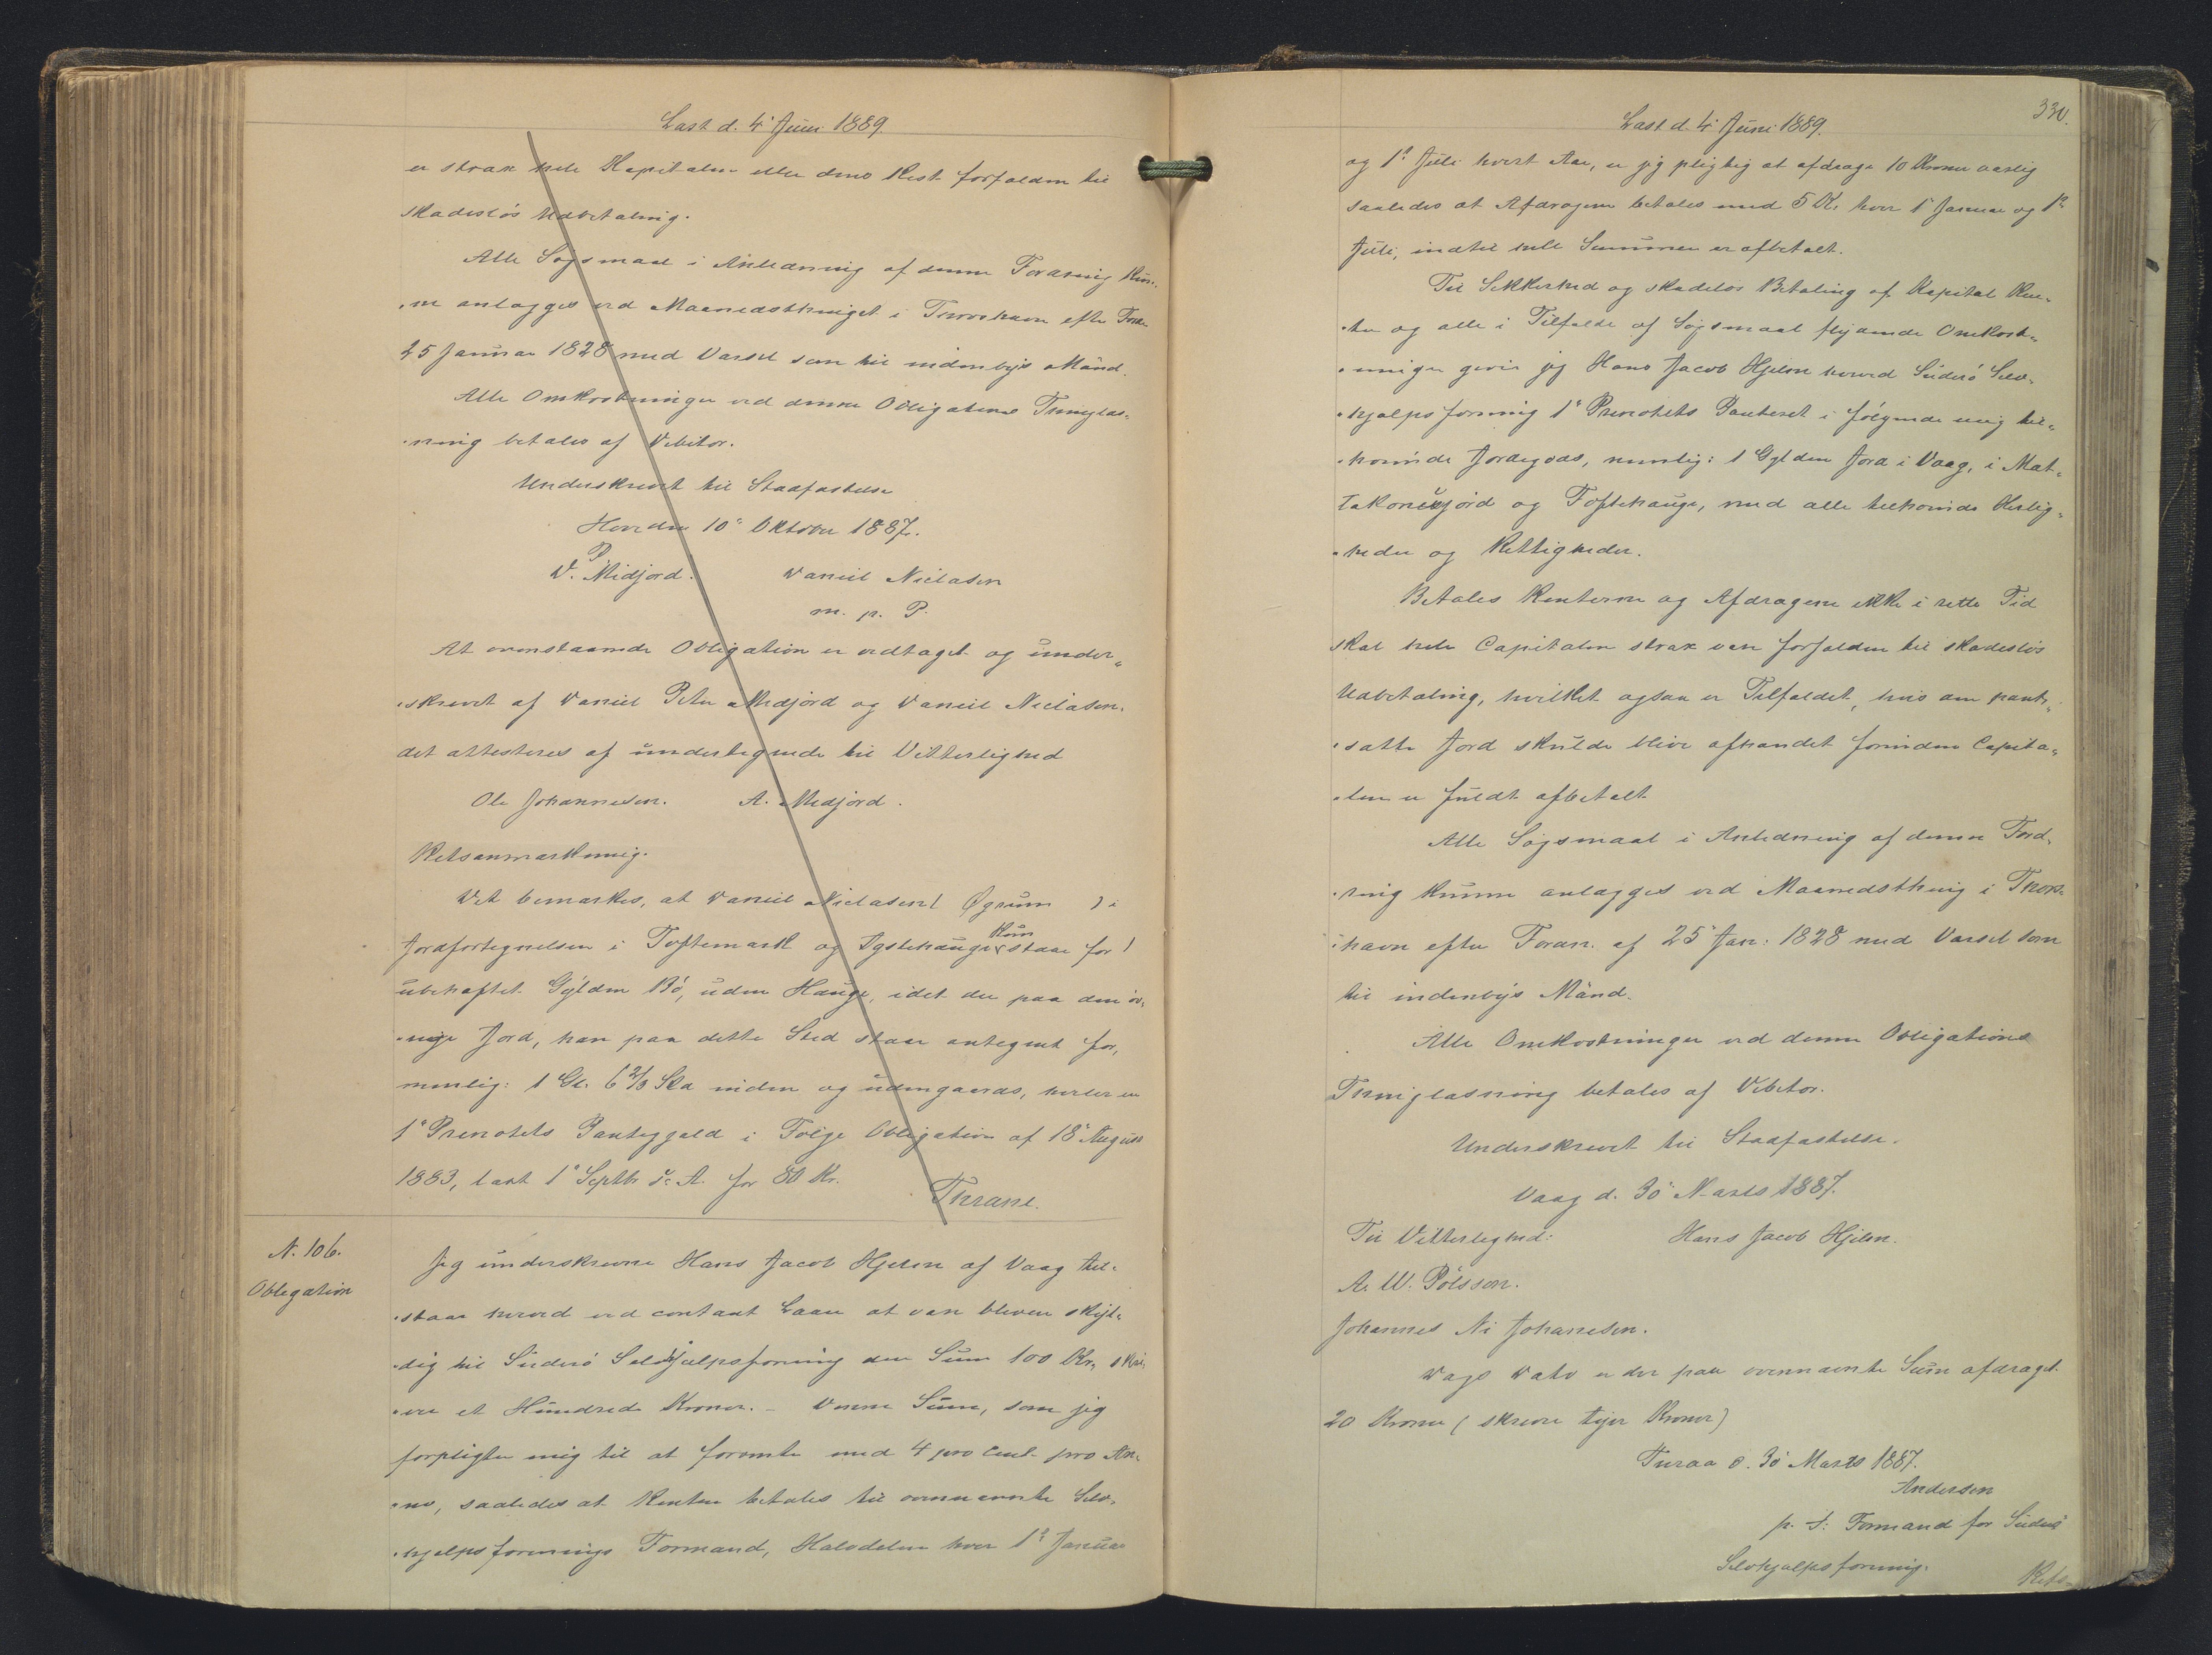 Læst d. 4' Juni 1889.
er strax hele Kapitalen eller dens Rest forfalden til
skadeslös Udbetaling.
Alle Sögsmaal i Anledning af denne Fordring kun„
„ne anlægges ved Maanedsthinget i Thorshavn efter Fordn
25 Januar 1828 med Varsel som til indenbys Mænd.
Alle Omkostninger ved denne Obligations Thinglæs„
„ning betales af Debitor.
Underskrevet til Stadfæstelse
Hov den 10' Oktober 1887.
D. P. Midjord. Daniel Niclasen
m. p. P.
At ovenstaaende Obligation er vedtaget og under„
„skrevet af Daniel Peter Midjord og Daniel Niclasen.
det attesteres af undertegnede til Vitterlighed
Ole Johannesen. A. Midjord.
Retsanmærkning.
Det bemærkes, at Daniel Niclasen ( Øgrum ) i
Jordfortegnelsen i Toftemark og Tystehauge kun staar for 1
ubehæftet Gylden Bö, uden Hauge, idet der paa den öv„
„rige Jord, han paa dette Sted staar antegnet for,
nemlig: 1 Gl. 6 2/3 Sk inden og udengaards, hviler en
1' Prioritets Pantegjæld i Følge Obligation af 18' August
1883, læst 1' Septbr s. A. for 80 Kr.
Thrane.
N. 106.
Obligation
Jeg underskrevne Hans Jacob Hjelm af Vaag til„
„staar herved ved contant Laan at være bleven skyl„
„dig til Süderö Selvhjælpsforening den Sum 100 Kr, skri„
„ver et Hundrede Kroner. – Denne Sum, som jeg
forpligter mig til at forrente med 4 pro Cent pro An„
„no, saaledes at Renten betales til ovennævnte Selv„
„hjelpsforenings Formand, Halvdelen hver 1ste Januar
330.
Læst d. 4' Juni 1889.
og 1ste Juli hvert Aar, er jeg pligtig at afdrage 10 Kroner aarlig
saaledes at Afdragene betales med 5 Kr. hver 1' Januar og 1ste
Juli, indtil hele Summen er afbetalt.
Til Sikkerhed og skadelös Betaling af Kapital Ren„
„ter og alle i Tilfælde af Sögsmaal flydende Omkost„
„ninger giver jeg Hans Jacob Hjelm herved Süderö Selv„
„hjælpsforening 1' Prioritets Panteret i fölgende mig til„
„hörende Jordegods, nemlig: 1 Gylden Jord i Vaag, i Mat„
takonujörd og Toftehauge, med alle tilhörende Herlig„
„heder og Rettigheder.
Betales Renterne og Afdragene ikke i rette Tid
skal hele Capitalen strax være forfalden til skadeslös
Udbetaling, hvilket ogsaa er Tilfældet, hvis den pant„
„satte Jord skulde blive afhændet forinden Capita„
„len er fuldt afbetalt
Alle Sögsmaal i Anledning af denne Ford„
„ring kunne anlægges ved Maanedsthing i Thors„
„havn efter Fordn. af 25' Jan: 1828 med Varsel som
til indenbys Mænd.
Alle Omkostninger ved denne Obligations
Thinglæsning betales af Debitor.
Underskrevet til Stadfæstelse.
Vaag d. 30' Marts 1887.
Til Vitterlighed: Hans Jacob Hjelm.
A. W. Pólsson.
Johannes Ni Johanesen.
Dags Dato er der paa ovennævnte Sum afdraget
20 Kroner (skriver tyve Kroner)
Tveraa d. 30' Marts 1887.
Andersen
p. t: Formand for Süderö
Selvhjælpsforening.
Rets-